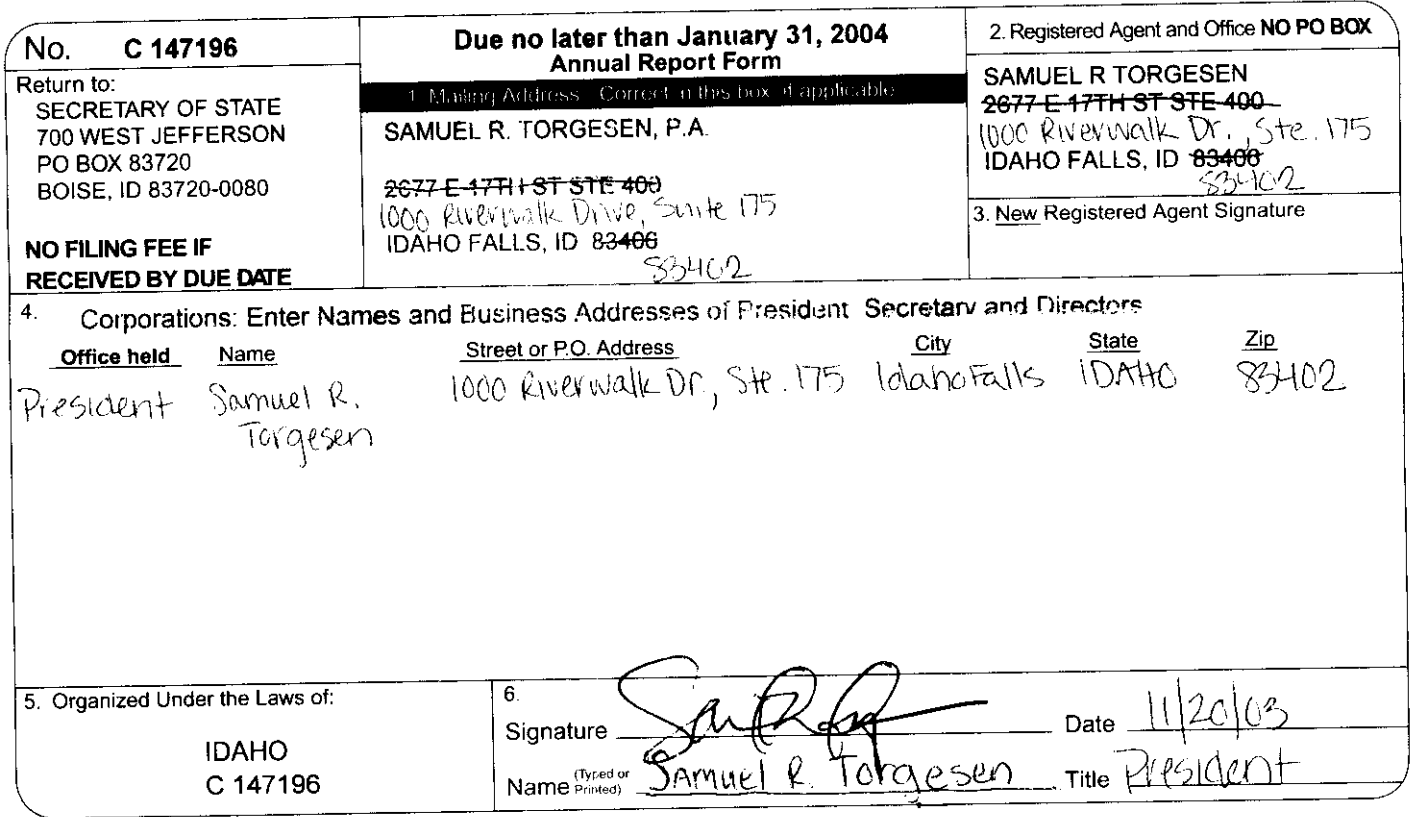 No. C 147196
Return to:
SECRETARY OF STATE
700 WEST JEFFERSON
PO BOX 83720
BOISE, ID 83720-0080
NO FILING FEE IF
RECEIVED BY DUE DATE
Due no later than January 31, 2004
Annual Report Form
1. Mailing Address. Correct in this box if applicable
SAMUEL R. TORGESEN, P.A.
2677 E 17TH ST STE 400
1000 Riverwalk Drive, Suite 175
IDAHO FALLS, ID 83406
83402
2. Registered Agent and Office NO PO BOX
SAMUEL R TORGESEN
2677 E 17TH ST STE 400
1000 Riverwalk Dr., Ste. 175
IDAHO FALLS, ID 83406
83402
3. New Registered Agent Signature
4. Corporations: Enter Names and Business Addresses of President Secretary and Directors
Office held Name Street or P.O. Address City State Zip
President Samuel R. 1000 Riverwalk Dr., Ste. 175 Idaho Falls IDAHO 83402
Torgesen
5. Organized Under the Laws of:
IDAHO
C 147196
6.
Signature Date 11/20/03
Name (Typed or Printed) SAmuel R. Torgesen Title President